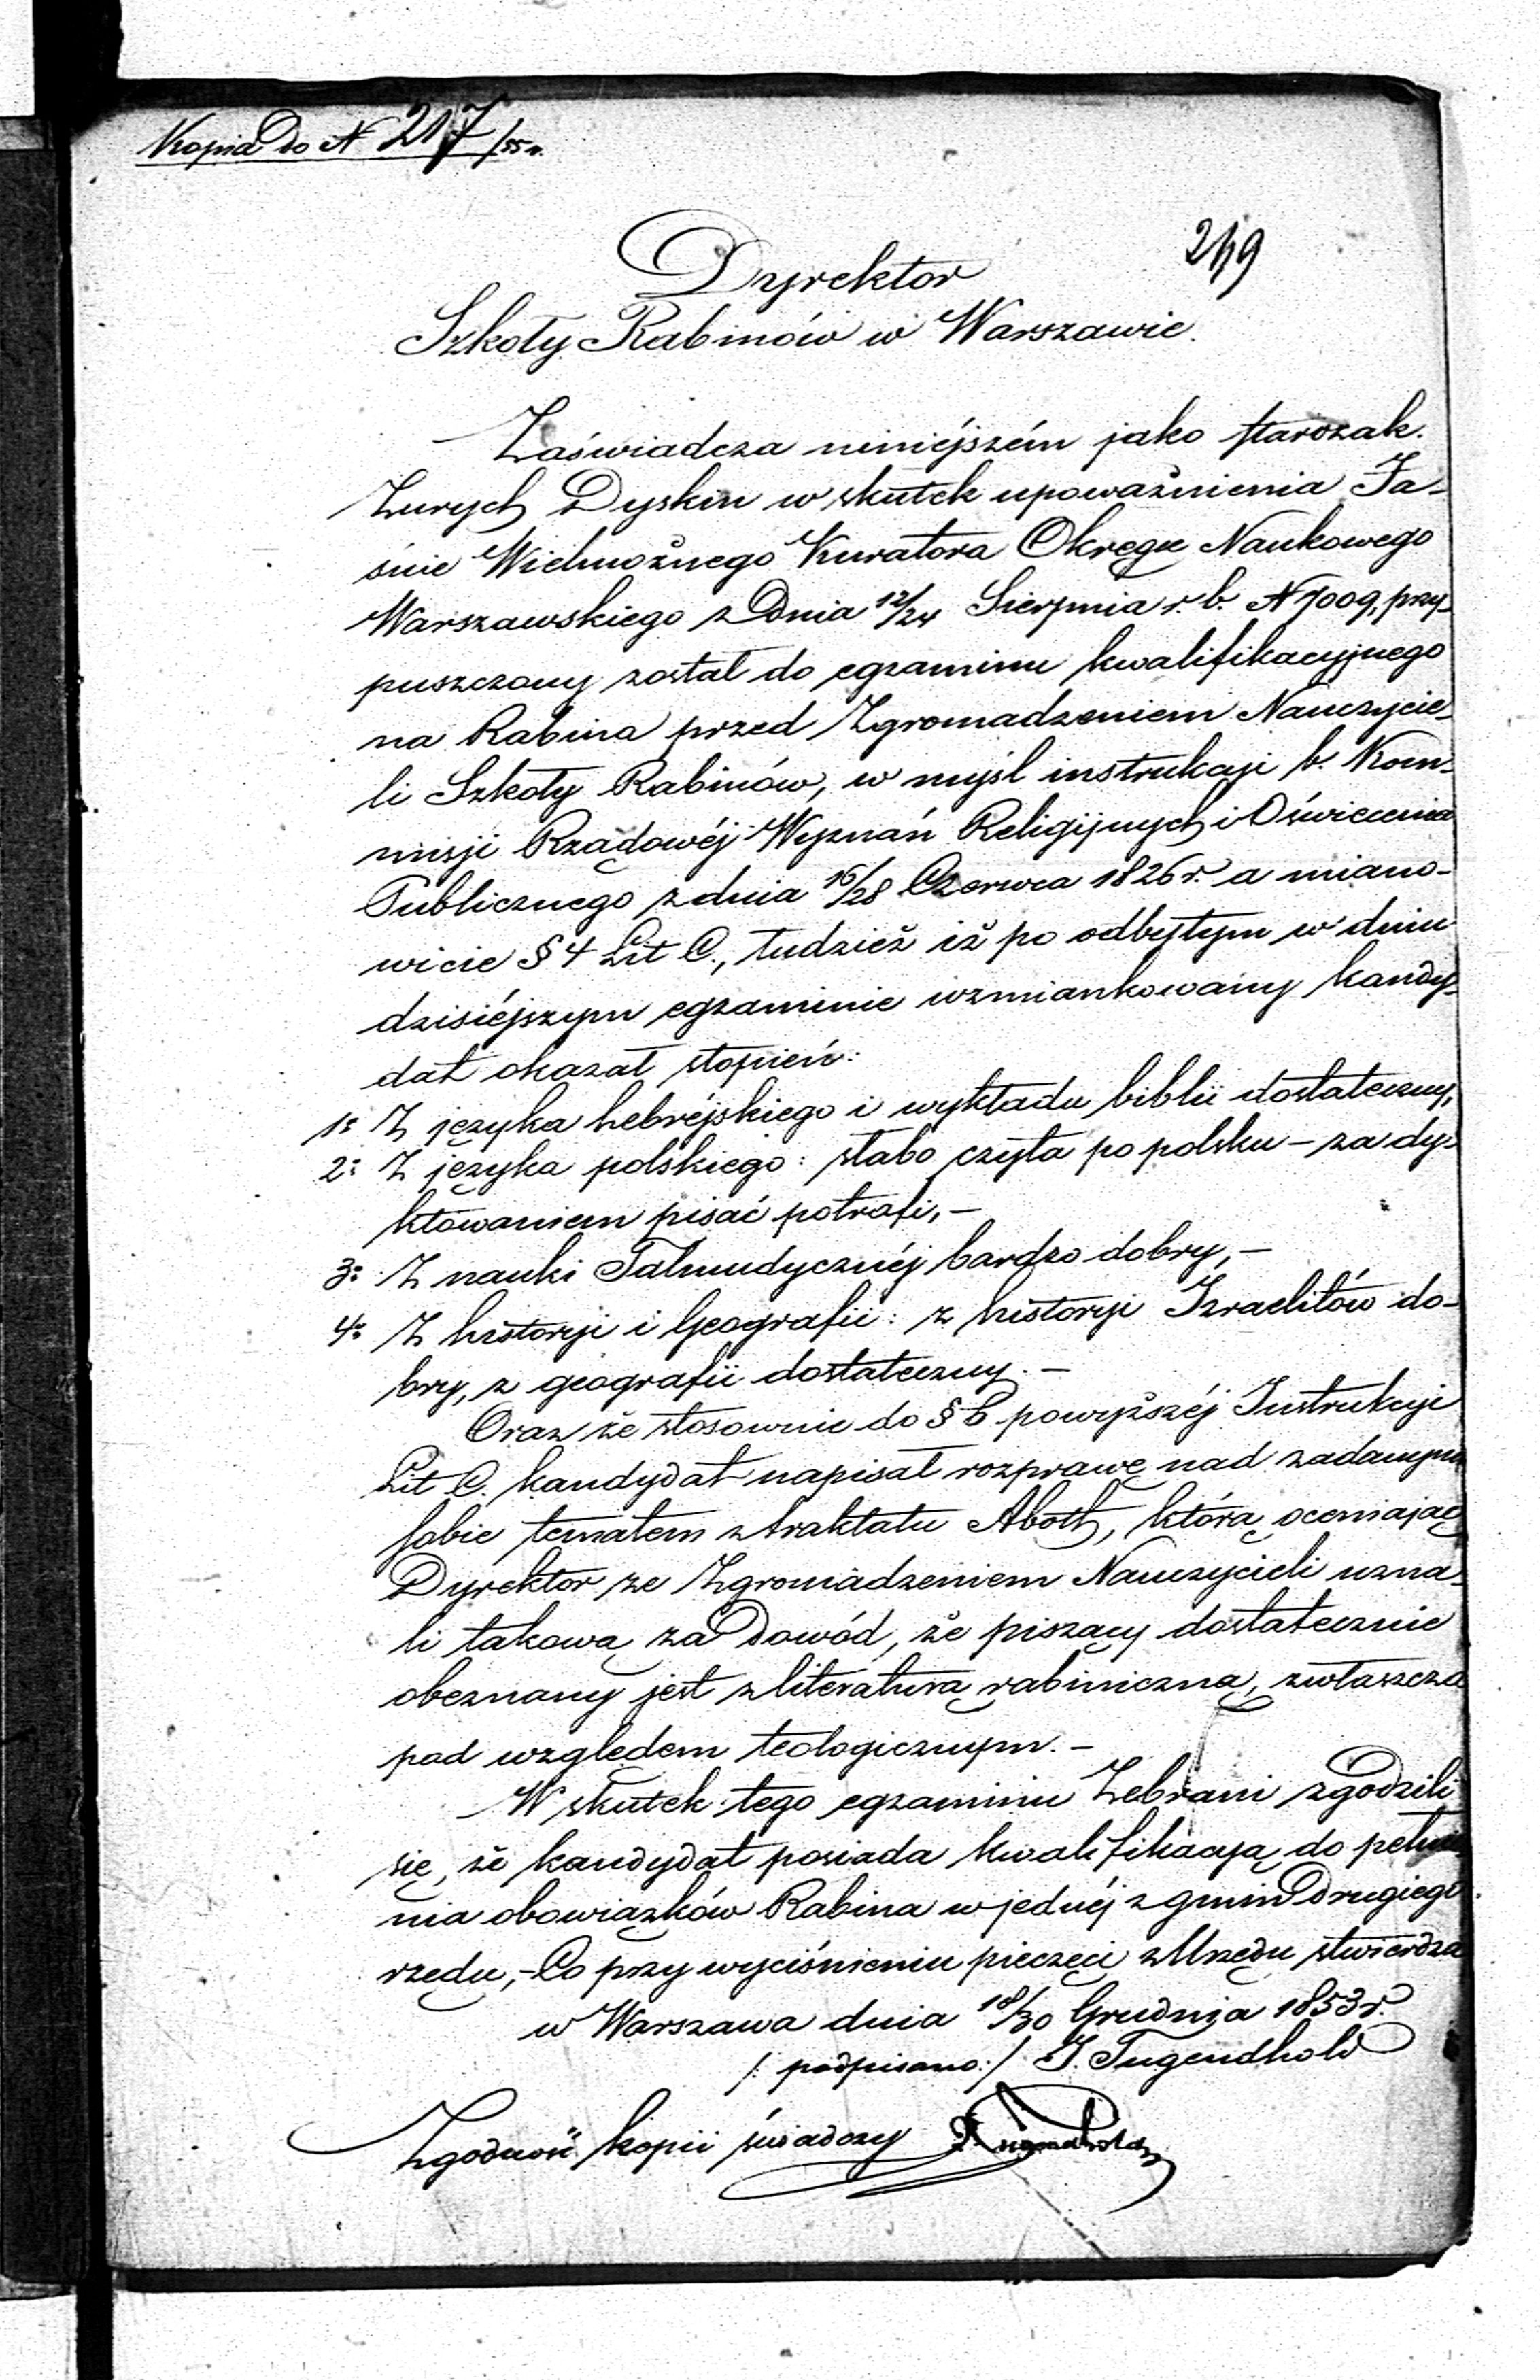 Kopia do N 217/55 r.
249
Dyrektor
Szkoły Rabinów w Warszawie.
Zaświadcza niniéjszém jako starozak.
Zurych Dyskin w skutek upoważnienia Ja-
śnie Wielmożnego Kuratora Okręgu Naukowego
Warszawskiego z Dnia 12/24 Sierpnia r. b. N 7009, przy-
puszczony został do egzaminu kwalifikacyjnego
na Rabina przed Zgromadzeniem Nauczycie-
li Szkoły Rabinów, w myśl instrukcyi b. Kom-
misji Rządowéj Wyznań Religijnych i Oświecenia
Publicznego z dnia 16/28 Czerwca 1826 r. a miano-
wicie § 4 Lit C., tudzież iż po odbytym w dniu
dzisiéjszym egzaminie wzmiankowany kandy-
dat okazał stopień:
1º Z języka hebréjskiego i wykładu biblii dostateczny,
2º Z języka polskiego: słabo czyta po polsku – za dy-
ktowaniem pisać potrafi, –
3º Z nauki Talmudycznéj bardzo dobry, –
4º Z historyi i Geografii: z historyi Izraelitów do-
bry, z geografii dostateczny. –
Oraz że stosownie do § 6 powyższéj Instrukcyi
Lit C. kandydat napisał rozprawę nad zadanym
sobie tematem z traktatu Aboth, którą oceniając
Dyrektor ze Zgromadzeniem Nauczycieli uzna-
li takową za Dowód, że piszący dostatecznie
obeznany jest z literaturą rabiniczną, zwłaszcza
pod względem teologicznym. –
W skutek tego egzaminu Zebrani zgodzili
się, że kandydat posiada kwalifikacyą do pełnie-
nia obowiązków Rabina w jednéj z gmin Drugiego
rzędu, – Co przy wyciśnieniu pieczęci z Urzędu stwierdza
w Warszawa dnia 18/30 Grudnia 1853 r.
/: podpisano :/ J. Tugendhold
Zgodność kopii świadczy